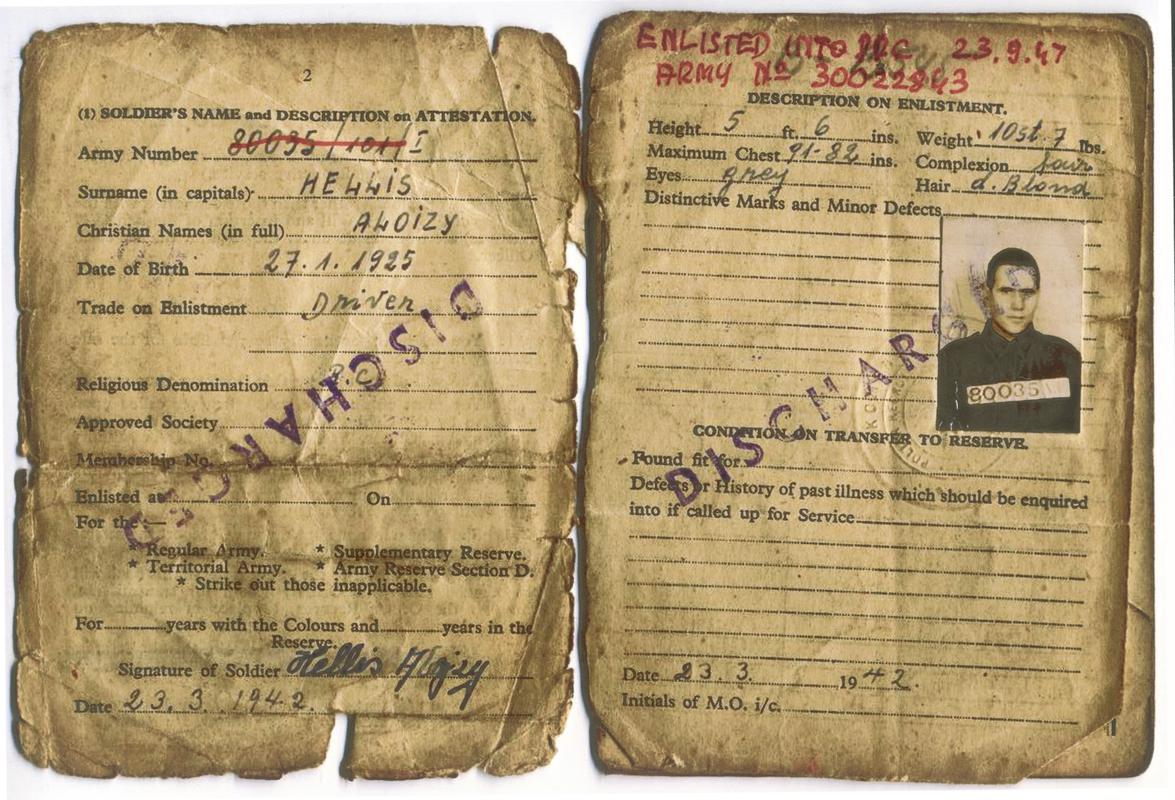 2
(1) SOLDIER'S NAME and DESCRIPTION on ATTESTATION.
Army Number 80035/101/I
Surname (in capitals) HELLIS
Christian Names (in full) ALOIZY
Date of Birth 27.1.1925
Trade on Enlistment Driver
Religious Denomination R.C
Approved Society
Membership No.
Enlisted at On
For the:—
* Regular Army. * Supplementary Reserve.
* Territorial Army. * Army Reserve Section D.
* Strike out those inapplicable.
For years with the Colours and years in the
Reserve.
Signature of Soldier Hellis Alojzy
Date 23.3.1942.
DISCHARGED
ENLISTED INTO PRC 23.9.47
ARMY No 30022843
DESCRIPTION ON ENLISTMENT.
Height 5 ft. 6 ins. Weight 10st.7 lbs.
Maximum Chest 91-82 ins. Complexion fair
Eyes grey Hair d. Blond
Distinctive Marks and Minor Defects
80035
CONDITION ON TRANSFER TO RESERVE.
Found fit for
Defects or History of past illness which should be enquired
into if called up for Service
Date 23.3. 1942.
Initials of M.O. i/c.
DISCHARGED